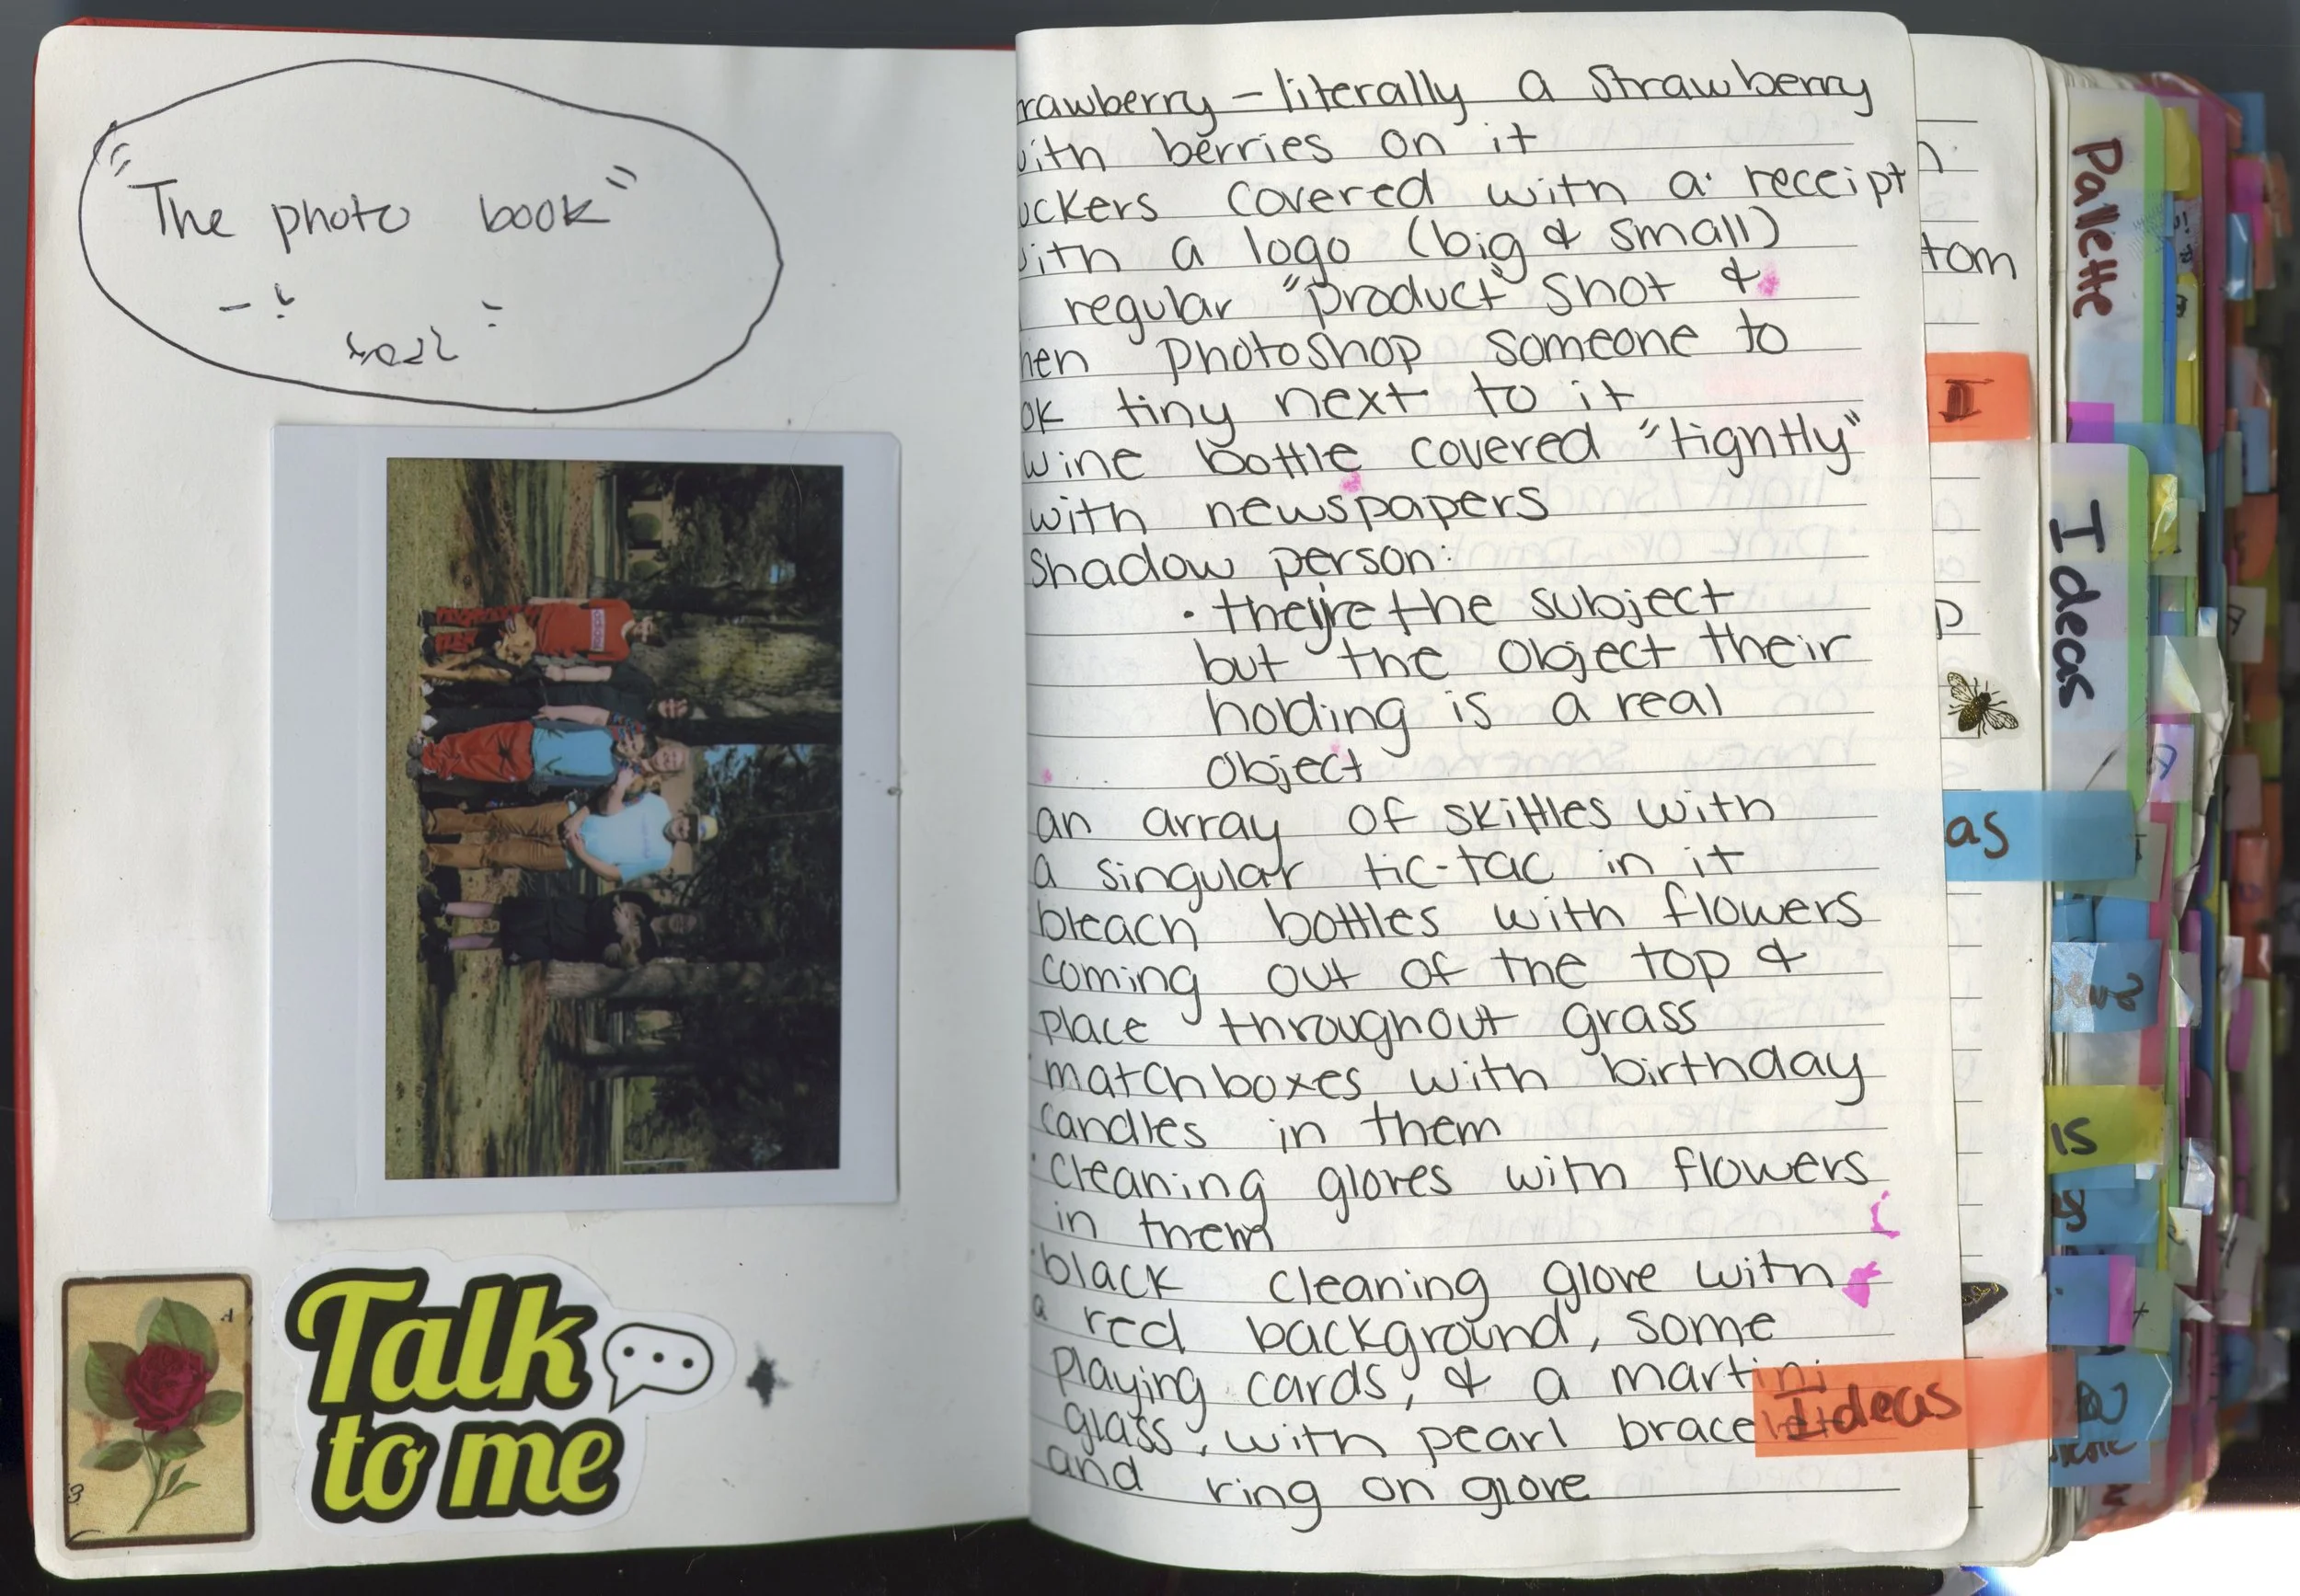 "The photo book"
Talk
to me
rawberry - literally a strawberry
with berries on it
uckers covered with a receipt
with a logo (big & small)
regular "product" shot &
hen photoshop someone to
ok tiny next to it
wine bottle covered "tigntly"
with newspapers
Shadow person:
• they're the subject
but the object their
holding is a real
object
an array of skittles with
a singular tic-tac in it
bleach bottles with flowers
coming out of the top &
place throughout grass
• matchboxes with birthday
candles in them
• cleaning gloves with flowers
in them
• black cleaning glove with
a red background, some
playing cards, & a martini
glass, with pearl bracelet
and ring on glove
Ideas
tom
I
as
Pallette
Ideas
is